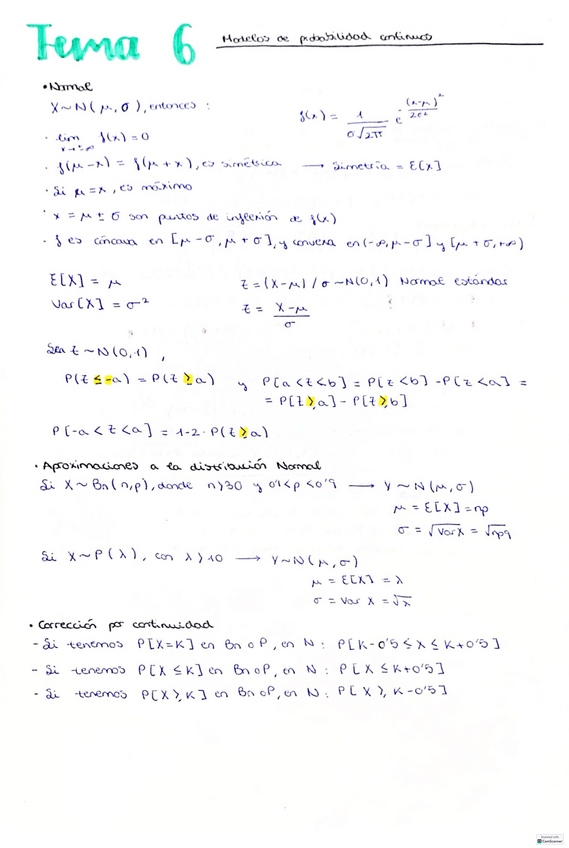 Tema 6 Modelos de probabilidad continuos
• Normal
X ~ N(μ, σ), entonces: f(x) = 1 / σ√2π e^-(x-μ)² / 2σ²
· lim x→±∞ f(x) = 0
· f(μ-x) = f(μ+x), es simétrica → Simetría = E[X]
· Si μ = x, es máximo
· x = μ ± σ son puntos de inflexión de f(x)
· f es cóncava en [μ-σ, μ+σ], y convexa en (-∞, μ-σ] y [μ+σ, +∞)
E[X] = μ Z = (X-μ) / σ ~ N(0,1) Normal estándar
Var[X] = σ² Z = X-μ / σ
Sea Z ~ N(0,1),
P(Z ≤ -a) = P(Z ≥ a) y P[a < Z < b] = P[Z < b] - P[Z < a] =
= P[Z ≥ a] - P[Z ≥ b]
P[-a < Z < a] = 1-2· P(Z ≥ a)
• Aproximaciones a la distribución Normal
Si X ~ Bn(n,p), donde n>30 y 0'1<p<0'9 → Y ~ N(μ, σ)
μ = E[X] = np
σ = √Var X = √npq
Si X ~ P(λ), con λ ≥ 10 → Y ~ N(μ, σ)
μ = E[X] = λ
σ = Var X = √λ
• Corrección por continuidad
- Si tenemos P[X=K] en Bn o P, en N: P[K-0'5 ≤ X ≤ K+0'5]
- Si tenemos P[X ≤ K] en Bn o P, en N: P[X ≤ K+0'5]
- Si tenemos P[X ≥ K] en Bn o P, en N: P[X ≥ K-0'5]
CamScanner